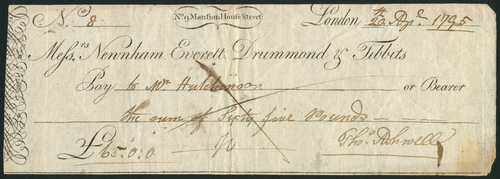 No. 9 Mansion House Street
No. 8 London 20th Apl. 1795
Messrs Newnham, Everett, Drummond & Tibbits
Pay to Mr. Hutchinson or Bearer
the sum of Sixty five Pounds
£65.0:0 Thos. Ashwell